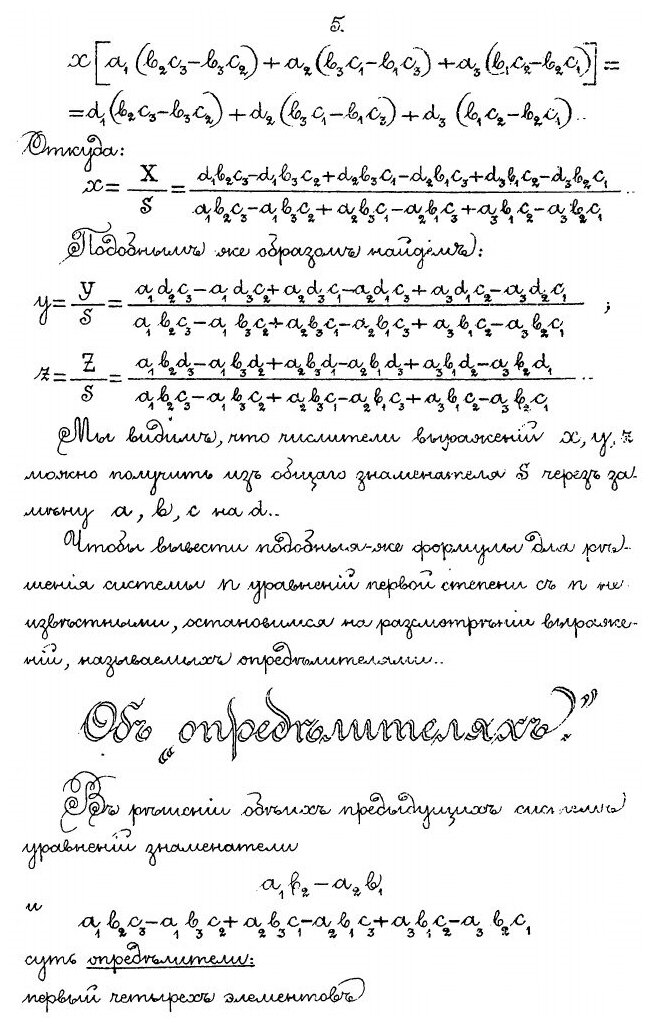 5.
x[a₁(b₂c₃−b₃c₂)+a₂(b₃c₁−b₁c₃)+a₃(b₁c₂−b₂c₁)]=
=d₁(b₂c₃−b₃c₂)+d₂(b₃c₁−b₁c₃)+d₃(b₁c₂−b₂c₁)..
Откуда:
x= X/S = (d₁b₂c₃−d₁b₃c₂+d₂b₃c₁−d₂b₁c₃+d₃b₁c₂−d₃b₂c₁)/(a₁b₂c₃−a₁b₃c₂+a₂b₃c₁−a₂b₁c₃+a₃b₁c₂−a₃b₂c₁)..
Подобнымъ же образомъ найдёмъ:
y= У/S = (a₁d₂c₃−a₁d₃c₂+a₂d₃c₁−a₂d₁c₃+a₃d₁c₂−a₃d₂c₁)/(a₁b₂c₃−a₁b₃c₂+a₂b₃c₁−a₂b₁c₃+a₃b₁c₂−a₃b₂c₁) ;
z= Z/S = (a₁b₂d₃−a₁b₃d₂+a₂b₃d₁−a₂b₁d₃+a₃b₁d₂−a₃b₂d₁)/(a₁b₂c₃−a₁b₃c₂+a₂b₃c₁−a₂b₁c₃+a₃b₁c₂−a₃b₂c₁)..
Мы видимъ, что числители выраженій x, y, z
можно получить изъ общаго знаменателя S черезъ за-
мѣну a, b, c на d..
Чтобы вывести подобныя-же формулы для рѣ-
шенія системы n уравненій первой степени съ n не-
извѣстными, остановимся на разсмотрѣніи выраже-
ній, называемыхъ опредѣлителями..
Объ „опредѣлителяхъ."
Въ рѣшеніи обѣихъ предыдущихъ системъ
уравненій знаменатели
a₁b₂−a₂b₁
и
a₁b₂c₃−a₁b₃c₂+a₂b₃c₁−a₂b₁c₃+a₃b₁c₂−a₃b₂c₁
суть опредѣлители:
первый четырехъ элементовъ